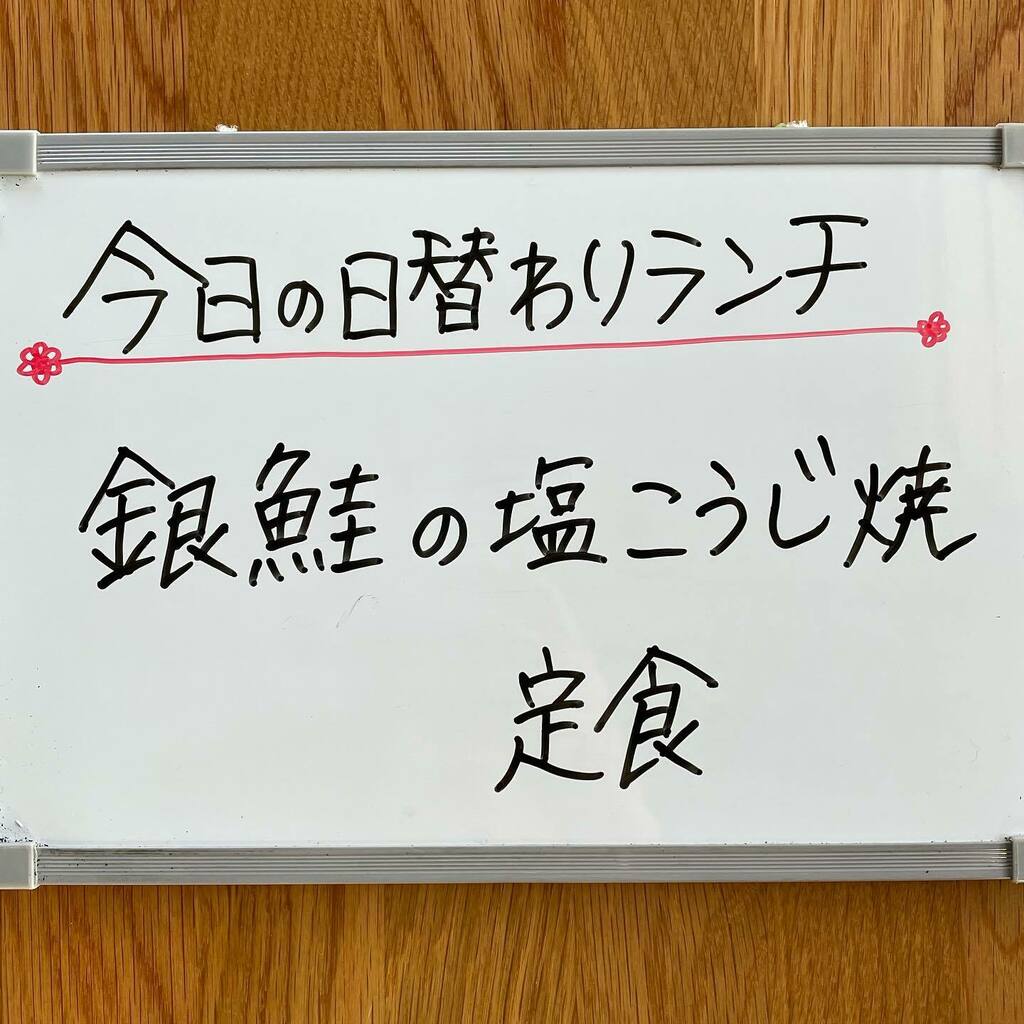 今日の日替わりランチ
銀鮭の塩こうじ焼
定食